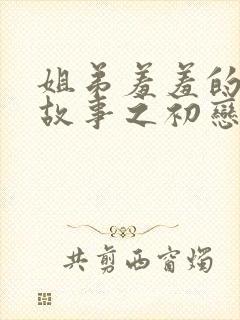 姐弟羞羞的
故事之初戀
共剪西窗燭